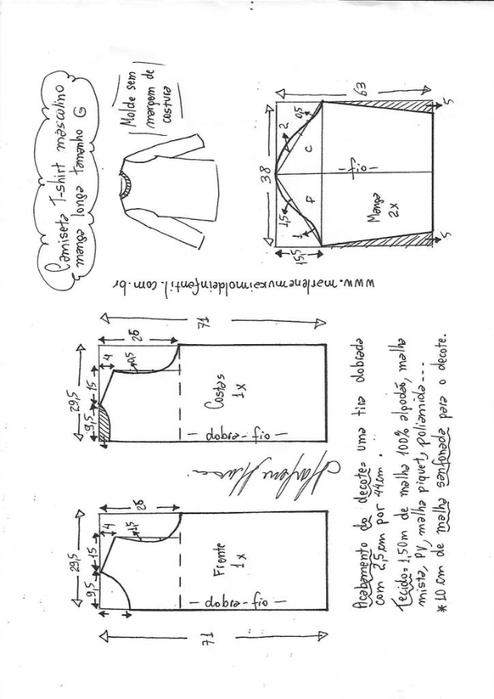 Camiseta T-shirt masculino
manga longa tamanho G
Molde sem
margem de
costura
63
38
2
0,5
C
F
1,5
1
fio
Manga
2x
15,5
5
5
www.marlenemukaimoldeinfantil.com.br
71
26
4
15
29,5
9,5
0,5
Costas
1x
fio-dobra
Marlene Mukai
26
4
15
29,5
9,5
1,5
Frente
1x
fio-dobra
71
Acabamento do decote= uma tira dobrada
com 2,5cm por 44cm.
Tecido= 1,50m de malha 100% algodão, malha
mista, PV, malha piquet, poliamida---
*10 cm de malha sanfonada para o decote.